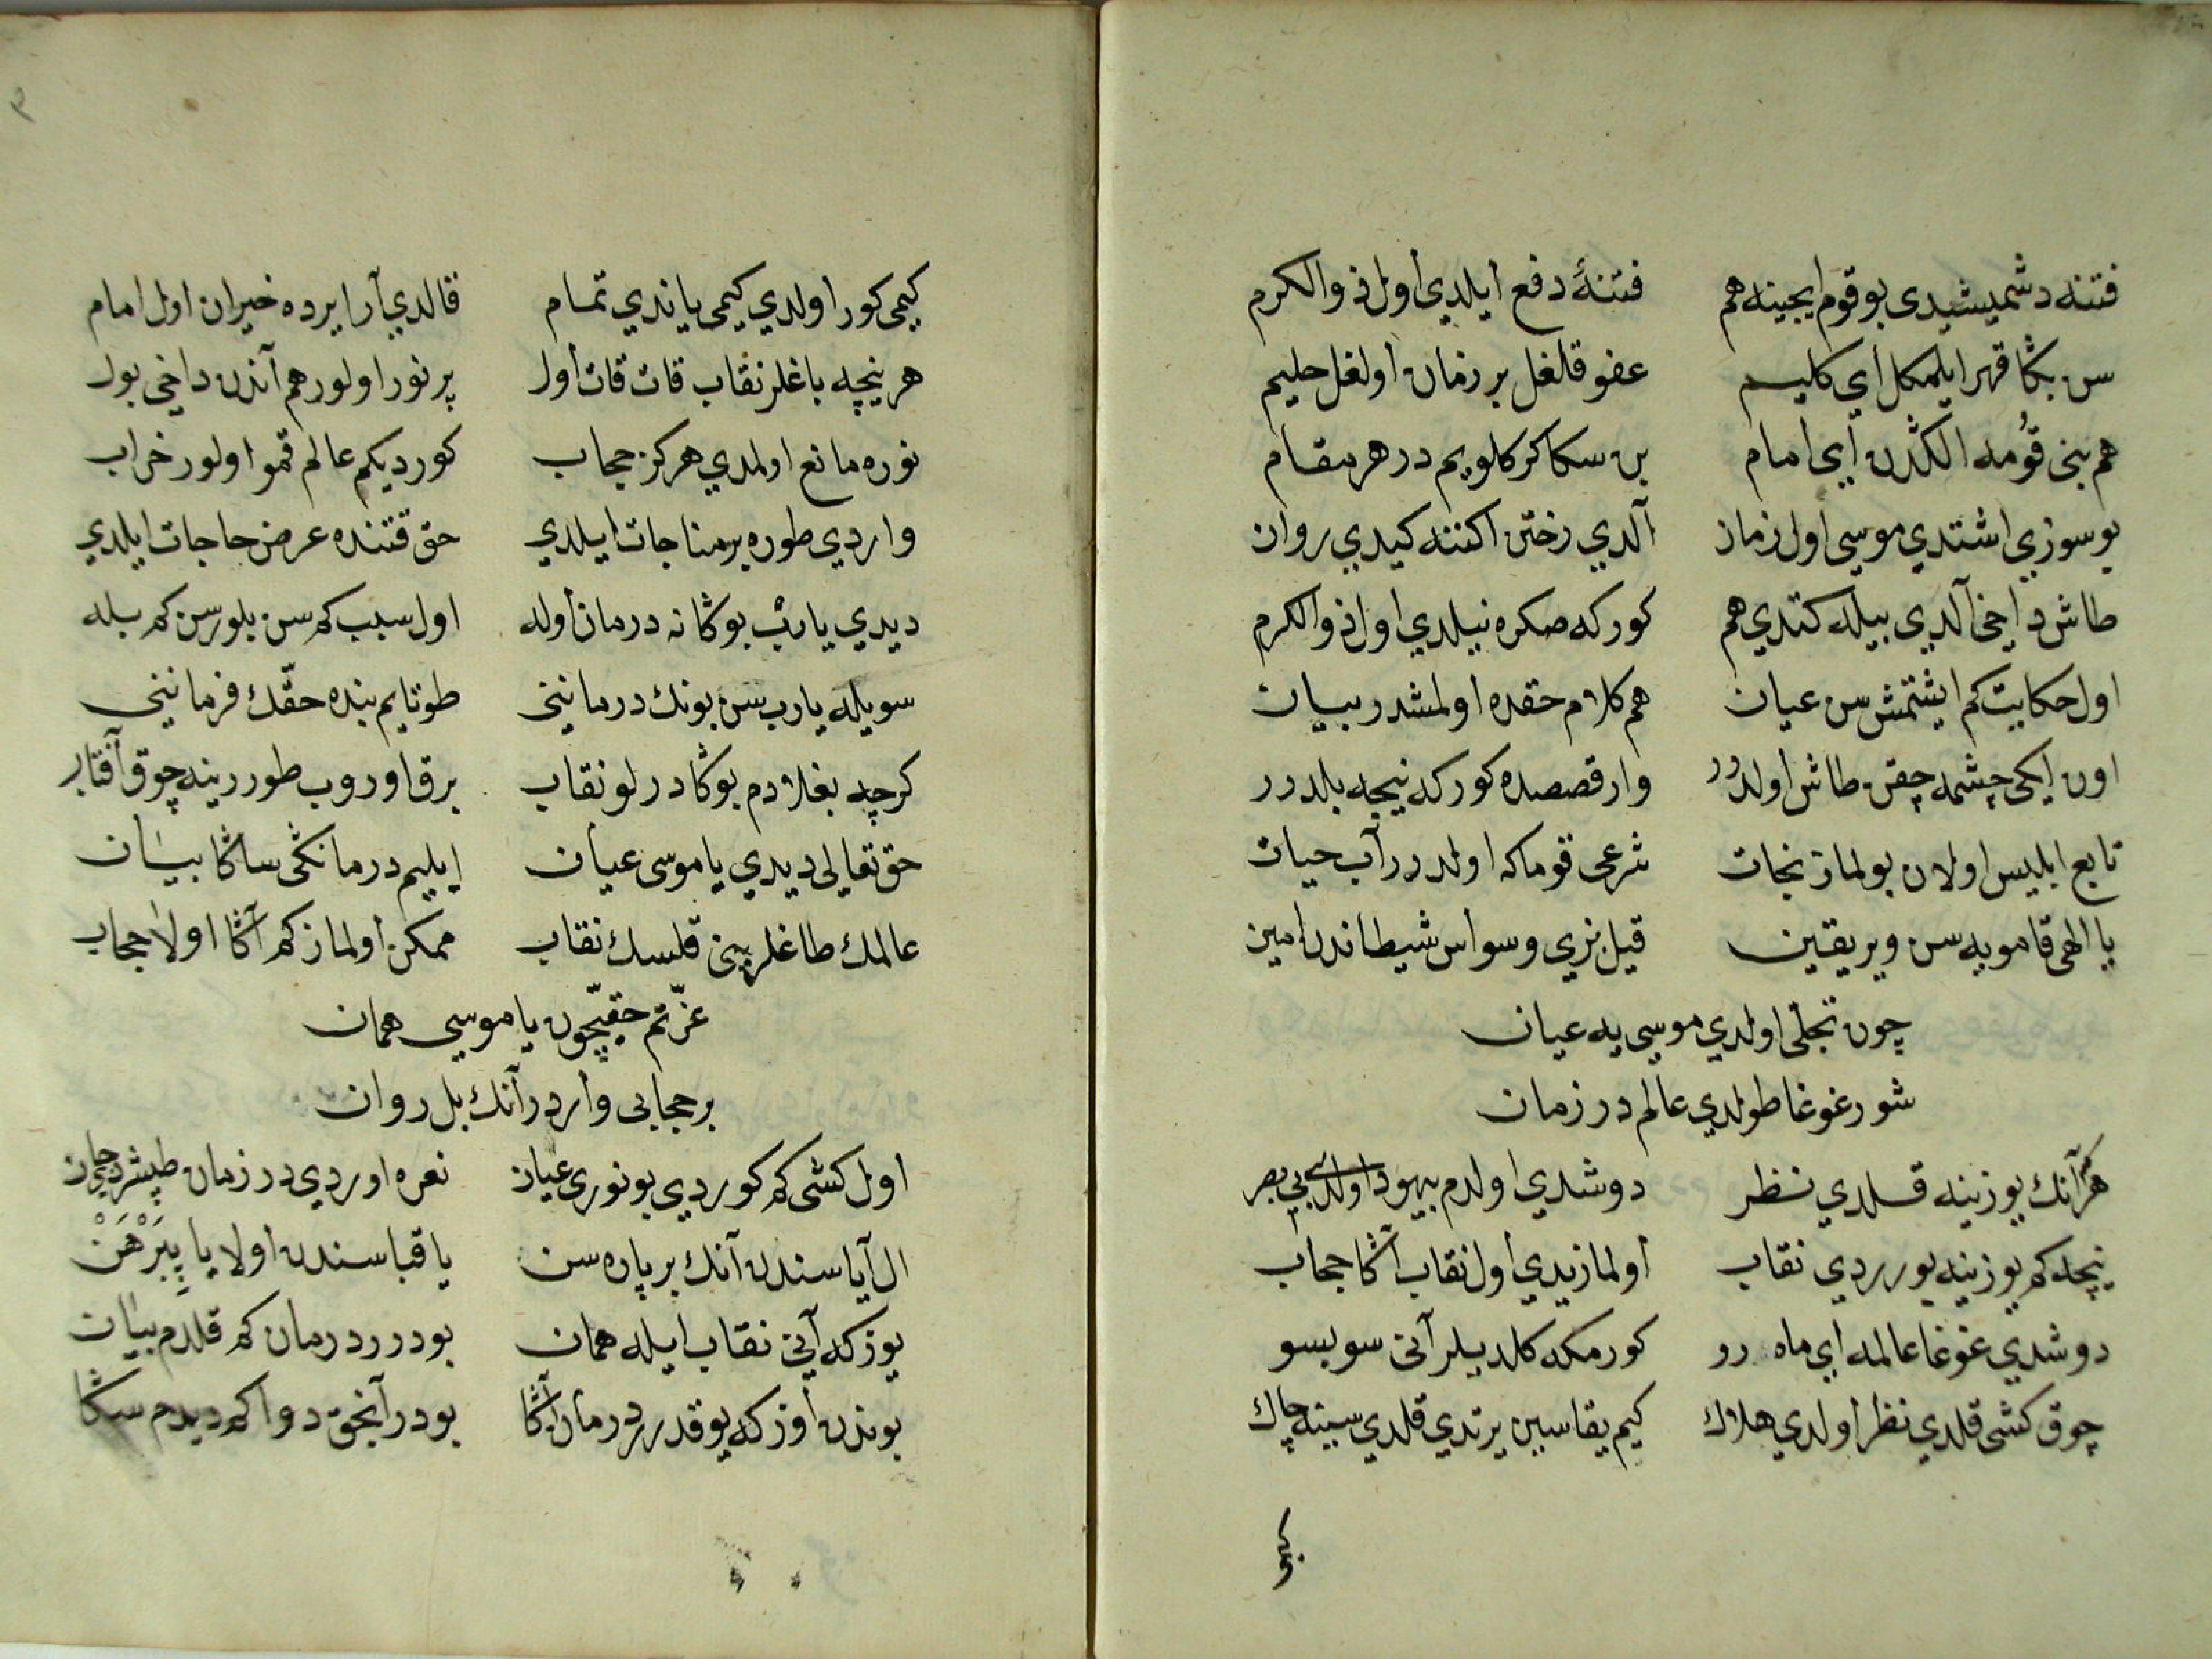 فتنه دشمیشیدی بو قوم ایچینه هم فتنهٔ دفع ایلدی اول ذو الکرم
سن بڭا قهر ایلمکل ای کلیم عفو قلغل بر زمان اولغل حلیم
هم بنی قومه الکدن ای امام بن سکا کرکلویم در هر مقام
بو سوزی اشتدی موسی اول زمان آلدی رختن اکننه کیدی روان
طاش داخی آلدی بیله کتدی هم کور که صکره نیلدی اول ذو الکرم
اول حکایت کم ایشتمش سن عیان هم کلام حقده اولمشدر بیان
اون ایکی چشمه چقن طاش اولدرر وار قصصده کور که نیچه بلدرر
تابع ابلیس اولان بولماز نجات شرعی قوما که اولدرر آب حیات
یا الهی قامویه سن ویر یقین قیل بزی وسواس شیطاندن امین
چون تجلی اولدی موسی یه عیان
شور غوغا طولدی عالم در زمان
هر آنك یوزینه قلدی نظر دوشدی اولدم بیهود اولدی بی بصر
نیچه کم یوزینه یورردی نقاب اولمازیدی اول نقاب آڭا حجاب
دوشدی غوغا عالمه ای ماه رو کورمکه کلدیلر آنی سوبسو
چوق کشی قلدی نظر اولدی هلاك کیم یقاسین یرتدی قلدی سینه چاك
کیمی
کیمی کور اولدی کیمی یاندی تمام قالدی آرایرده حیران اول امام
هر نیچه باغلر نقاب قات قات اول پر نور اولور هم آندن داخی بول
نوره مانع اولمدی هرکز حجاب کوردیکم عالم قمو اولور خراب
واردی طوره بر مناجات ایلدی حق قتنده عرض حاجات ایلدی
دیدی یا رب بوڭا نه درمان اوله اول سبب کم سن بلورسن کم بیله
سویله یا رب سن بونك درماننی طوتایم بنده حقك فرماننی
کرچه بغلادم بوڭا درلو نقاب برق اوروب طورر ینه چوق آفتاب
حق تعالی دیدی یا موسی عیان ایلیم درمانکی ساڭا بیان
عالمك طاغلرینی قلسك نقاب ممکن اولماز کم آڭا اولا حجاب
عزتم حقیچون یا موسی همان
بر حجابی واردر آنك بل روان
اول کشی کم کوردی بو نوری عیان نعره اوردی در زمان طپشردی جان
ال آیاسندن آنك بر پاره سن یا قباسندن اولا یا پیرهن
یوزکه آنی نقاب ایله همان بودرر درمان کم قلدم بیان
بوندن اوزکه یوقدرر درمان آڭا بودر آنجق دوا کم دیدم سکا